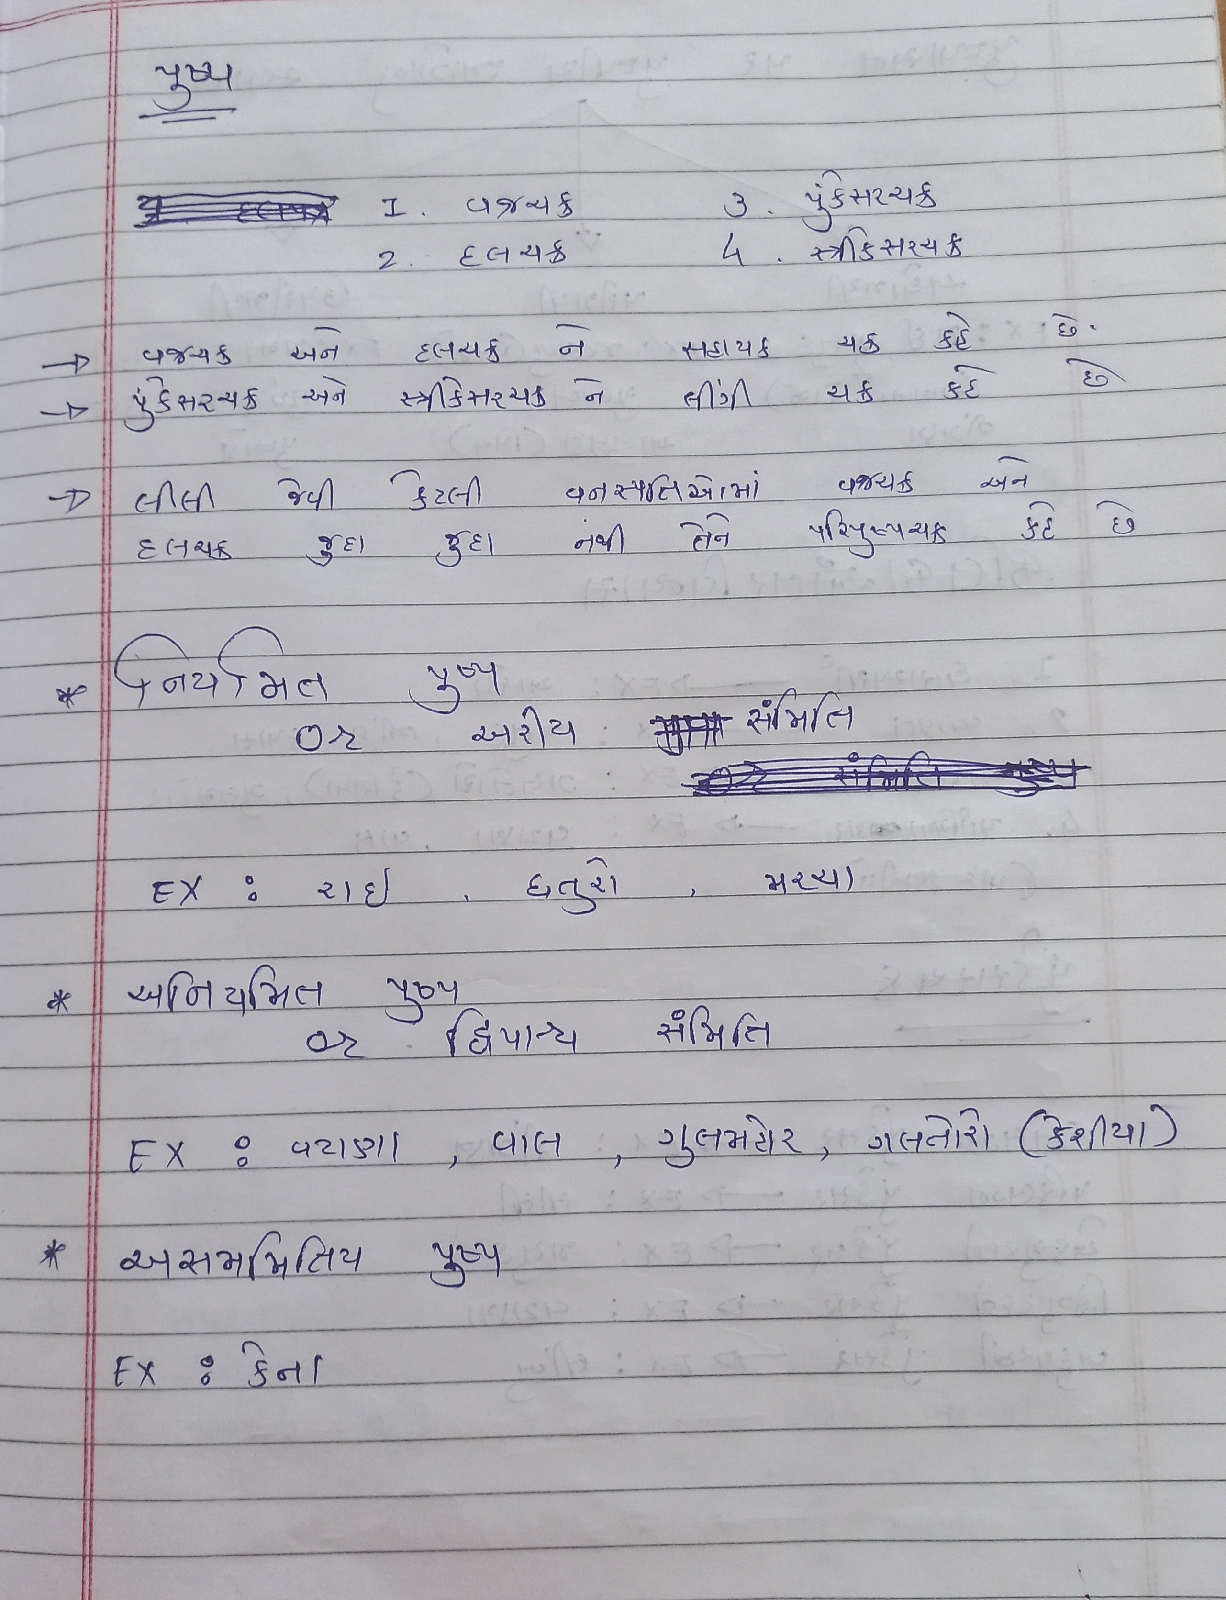 પુષ્પ
1. વજ્રચક્ર 3. પુંકેસરચક્ર
2. દલચક્ર 4. સ્ત્રીકેસરચક્ર
→ વજ્રચક્ર અને દલચક્ર ને સહાયક ચક્ર કહે છે.
→ પુંકેસરચક્ર અને સ્ત્રીકેસરચક્ર ને લીંગી ચક્ર કહે છે
→ લીલી જેવી કેટલી વનસ્પતિઓમાં વજ્રચક્ર અને
દલચક્ર જુદા જુદા નથી તેને પરિપુષ્પચક્ર કહે છે
* નિયમિત પુષ્પ
or અરીય સંમિતિ
EX : રાઈ , ધતુરો , મરચા
* અનિયમિત પુષ્પ
or દ્વિપાર્શ્વ સંમિતિ
EX : વટાણા , વાલ , ગુલમહોર, ગલતોરો (કેશીયા)
* અસમમિતિય પુષ્પ
EX : કેના